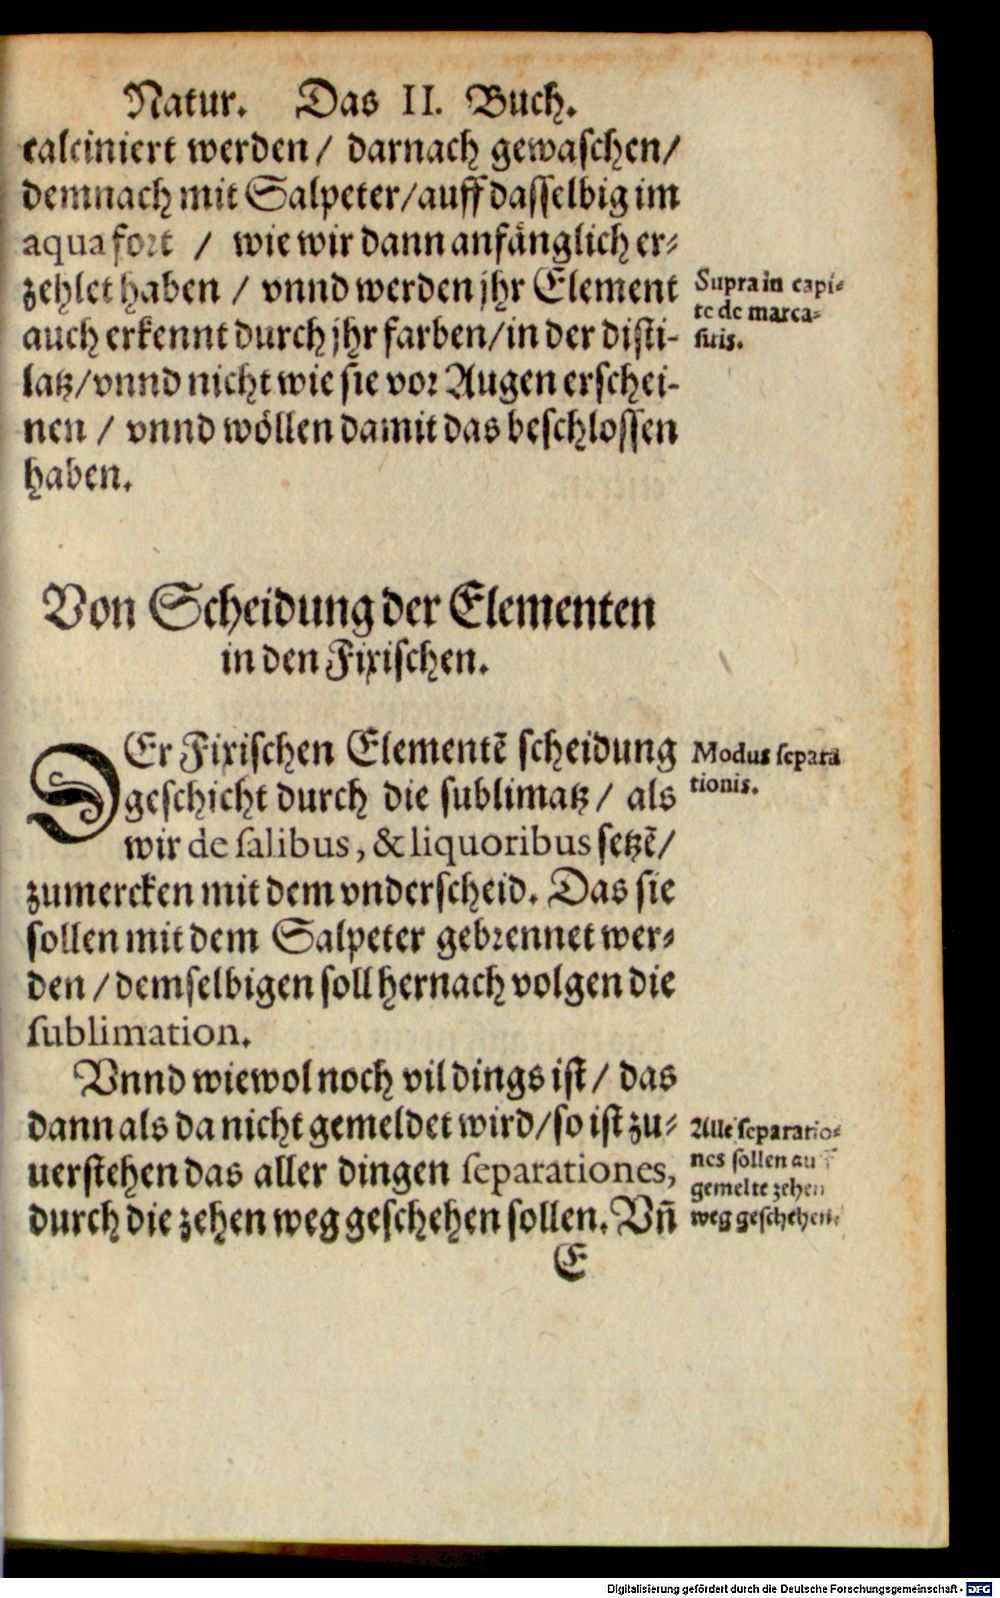 Natur. Das II. Buch.
calciniert werden / darnach gewaschen /
demnach mit Salpeter / auff dasselbig im
aqua fort / wie wir dann anfänglich er-
zehlet haben / vnnd werden jhr Element
auch erkennt durch jhr farben / in der disti-
latz / vnnd nicht wie sie vor Augen erschei-
nen / vnnd wöllen damit das beschlossen
haben.
Supra in capi-
te de marca-
sitis.
Von Scheidung der Elementen
in den Fixischen.
DEr Fixischen Elementẽ scheidung
geschicht durch die sublimatz / als
wir de salibus, & liquoribus setzẽ /
zumercken mit dem vnderscheid. Das sie
sollen mit dem Salpeter gebrennet wer-
den / demselbigen soll hernach volgen die
sublimation.
Modus separa
tionis.
Vnnd wiewol noch vil dings ist / das
dann als da nicht gemeldet wird / so ist zu-
uerstehen das aller dingen separationes,
durch die zehen weg geschehen sollen. Vñ
Alle separatio-
nes sollen auff
gemelte zehen
weg geschehen.
E
Digitalisierung gefördert durch die Deutsche Forschungsgemeinschaft - DFG